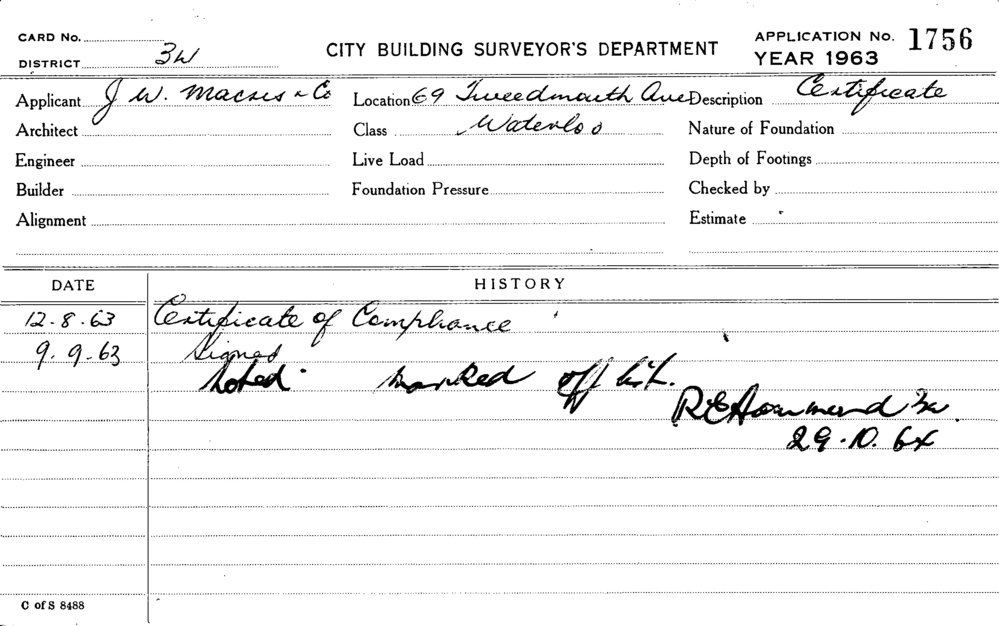 CARD No.
DISTRICT 3W
CITY BUILDING SURVEYOR'S DEPARTMENT
APPLICATION No. 1756
YEAR 1963
Applicant J W. & Co
Location 69 Tweedmouth Ave
Description Certificate
Architect
Class Waterloo
Nature of Foundation
Engineer
Live Load
Depth of Footings
Builder
Foundation Pressure
Checked by
Alignment
Estimate
DATE
HISTORY
12.8.63 Certificate of Compliance
9.9.63 Signed
Noted. marked off list.
R E Hammond 3w.
29.10.64
C of S 8488